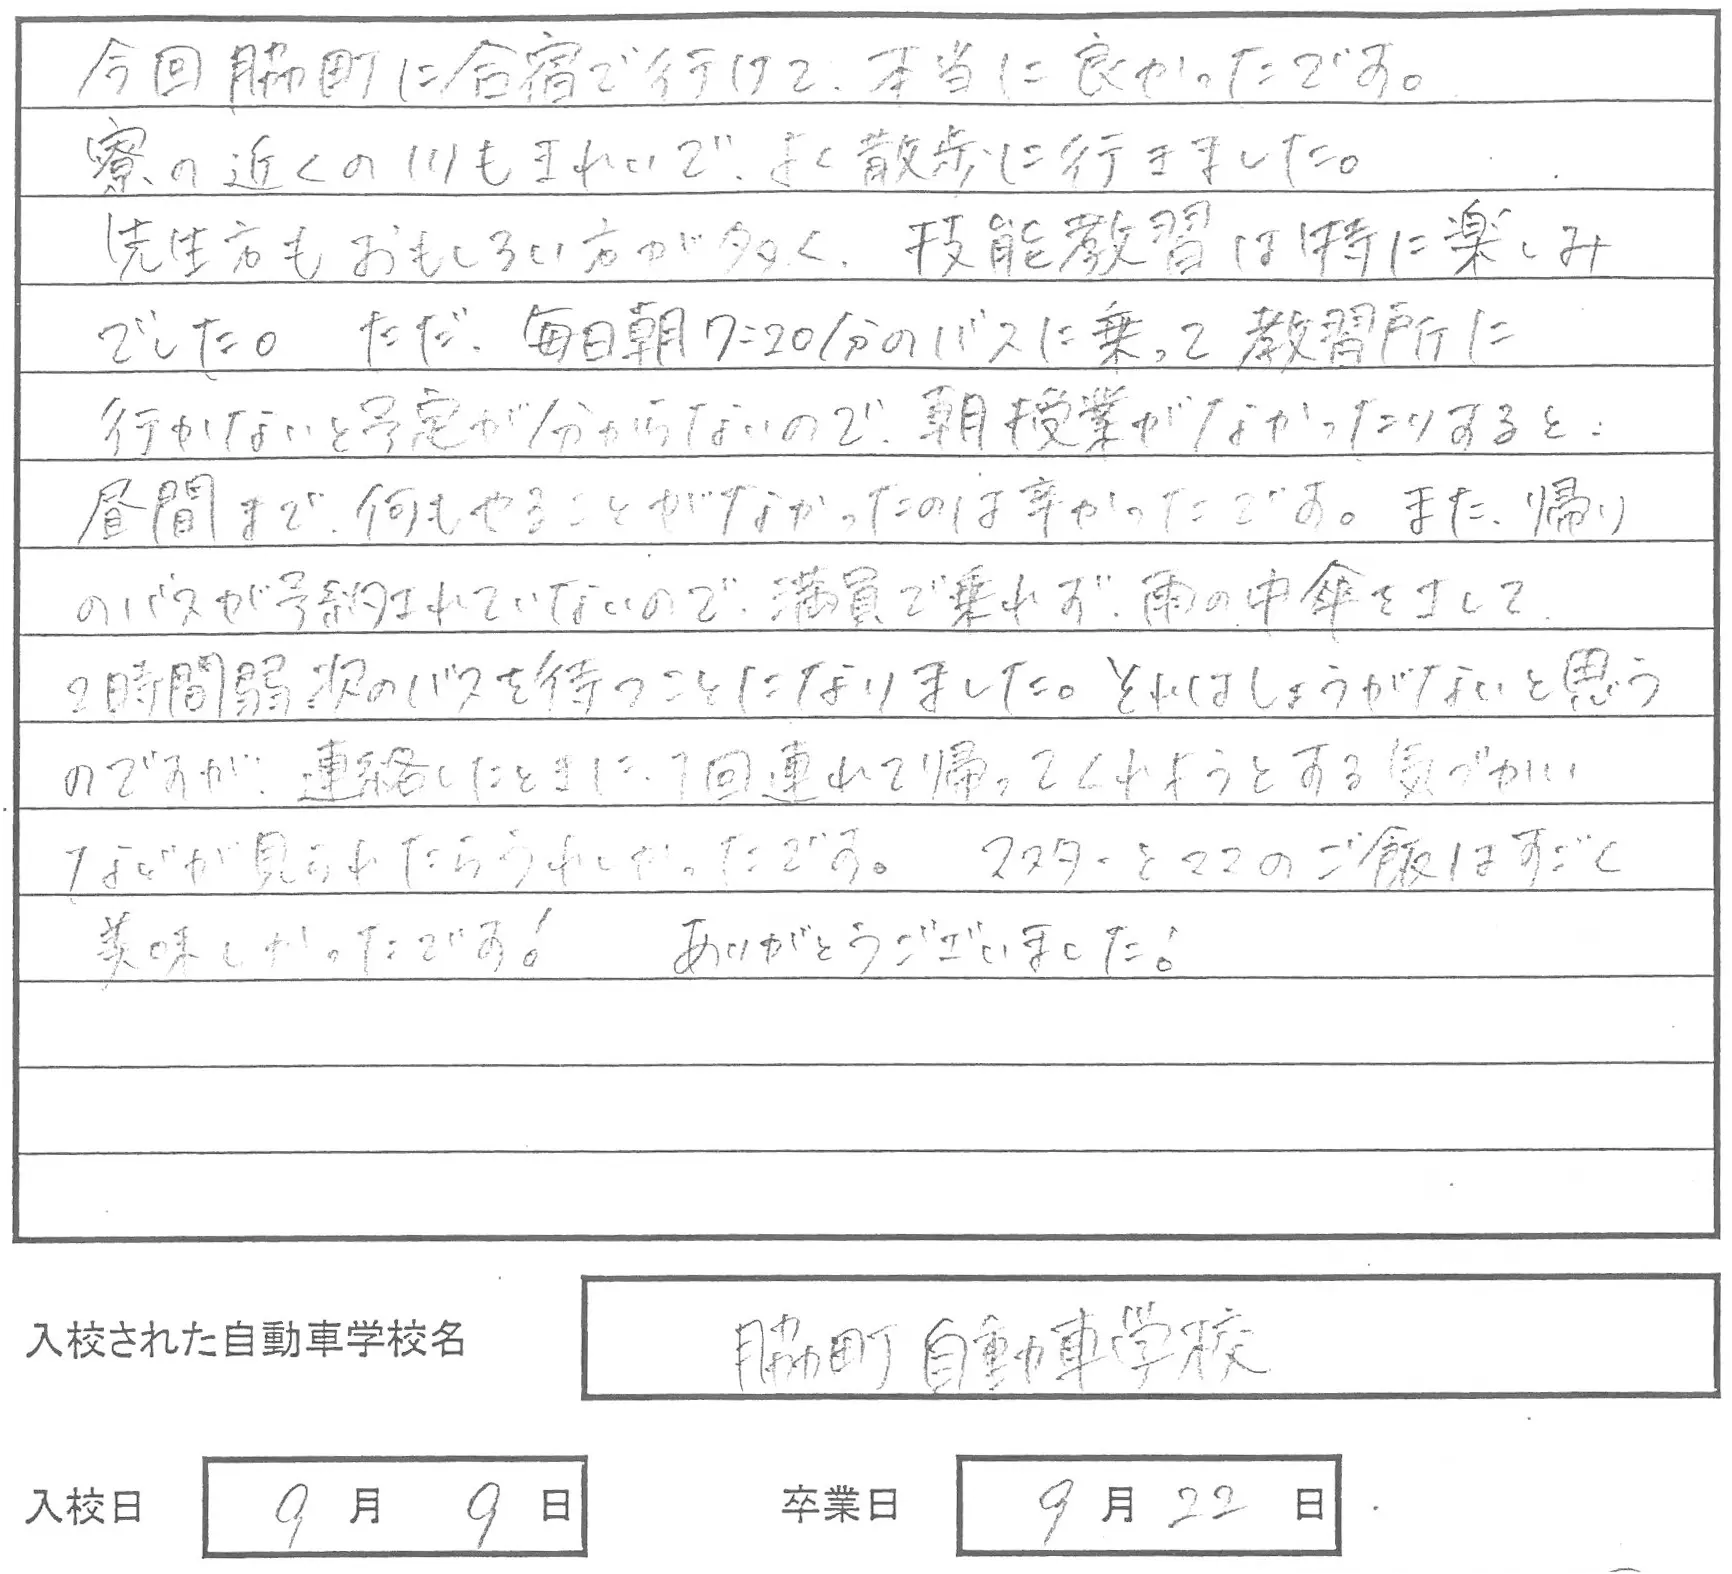 今回脇町に合宿で行けて、本当に良かったです。
寮の近くの川もきれいで、よく散歩に行きました。
先生方もおもしろい方が多く、技能教習は特に楽しみ
でした。 ただ、毎日朝7:20分のバスに乗って教習所に
行かないと予定が分からないので、朝授業がなかったりすると、
昼間まで、何もやることがなかったのは辛かったです。また、帰り
のバスが予約されていないので、満員で乗れず、雨の中傘をさして、
2時間弱次のバスを待つことになりました。それはしょうがないと思う
のですが、連絡したときに、1回連れて帰ってくれようとする気づかい
などが見られたらうれしかったです。 マスターとママのご飯はすごく
美味しかったです! ありがとうございました!
入校された自動車学校名 脇町自動車学校
入校日 9月 9日 卒業日 9月22日